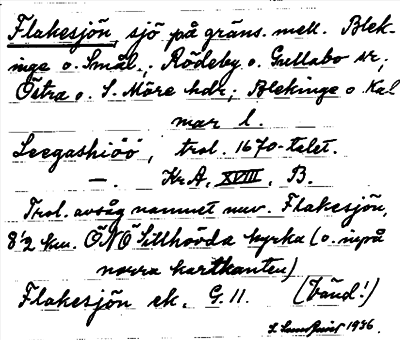 Flakesjön, sjö på gräns. mell. Blek-
inge o. Smål.; Rödeby o. Gullabo sr;
Östra o. S. Möre hdr; Blekinge o Kal
mar l.
Seegashiöö, trol. 1670-talet.
—. KrA, XVIII, B.
Trol. avsåg namnet nuv. Flakesjön,
8 1/2 km. ÖNÖ Sillhövda kyrka (o. inpå
norra kartkanten)
Flakesjön ek. G. 11. (Länd!)
S. Lundquist 1936.